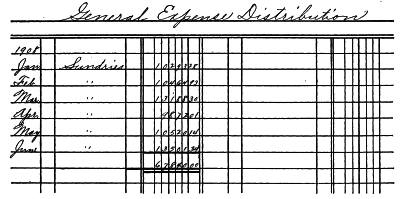 General Expense Distribution
1908
Jan Sundries 1029338
Feb " 1046483
Mar. " 1318830
Apr. " 987201
May " 1052014
June " 1350134
6784000